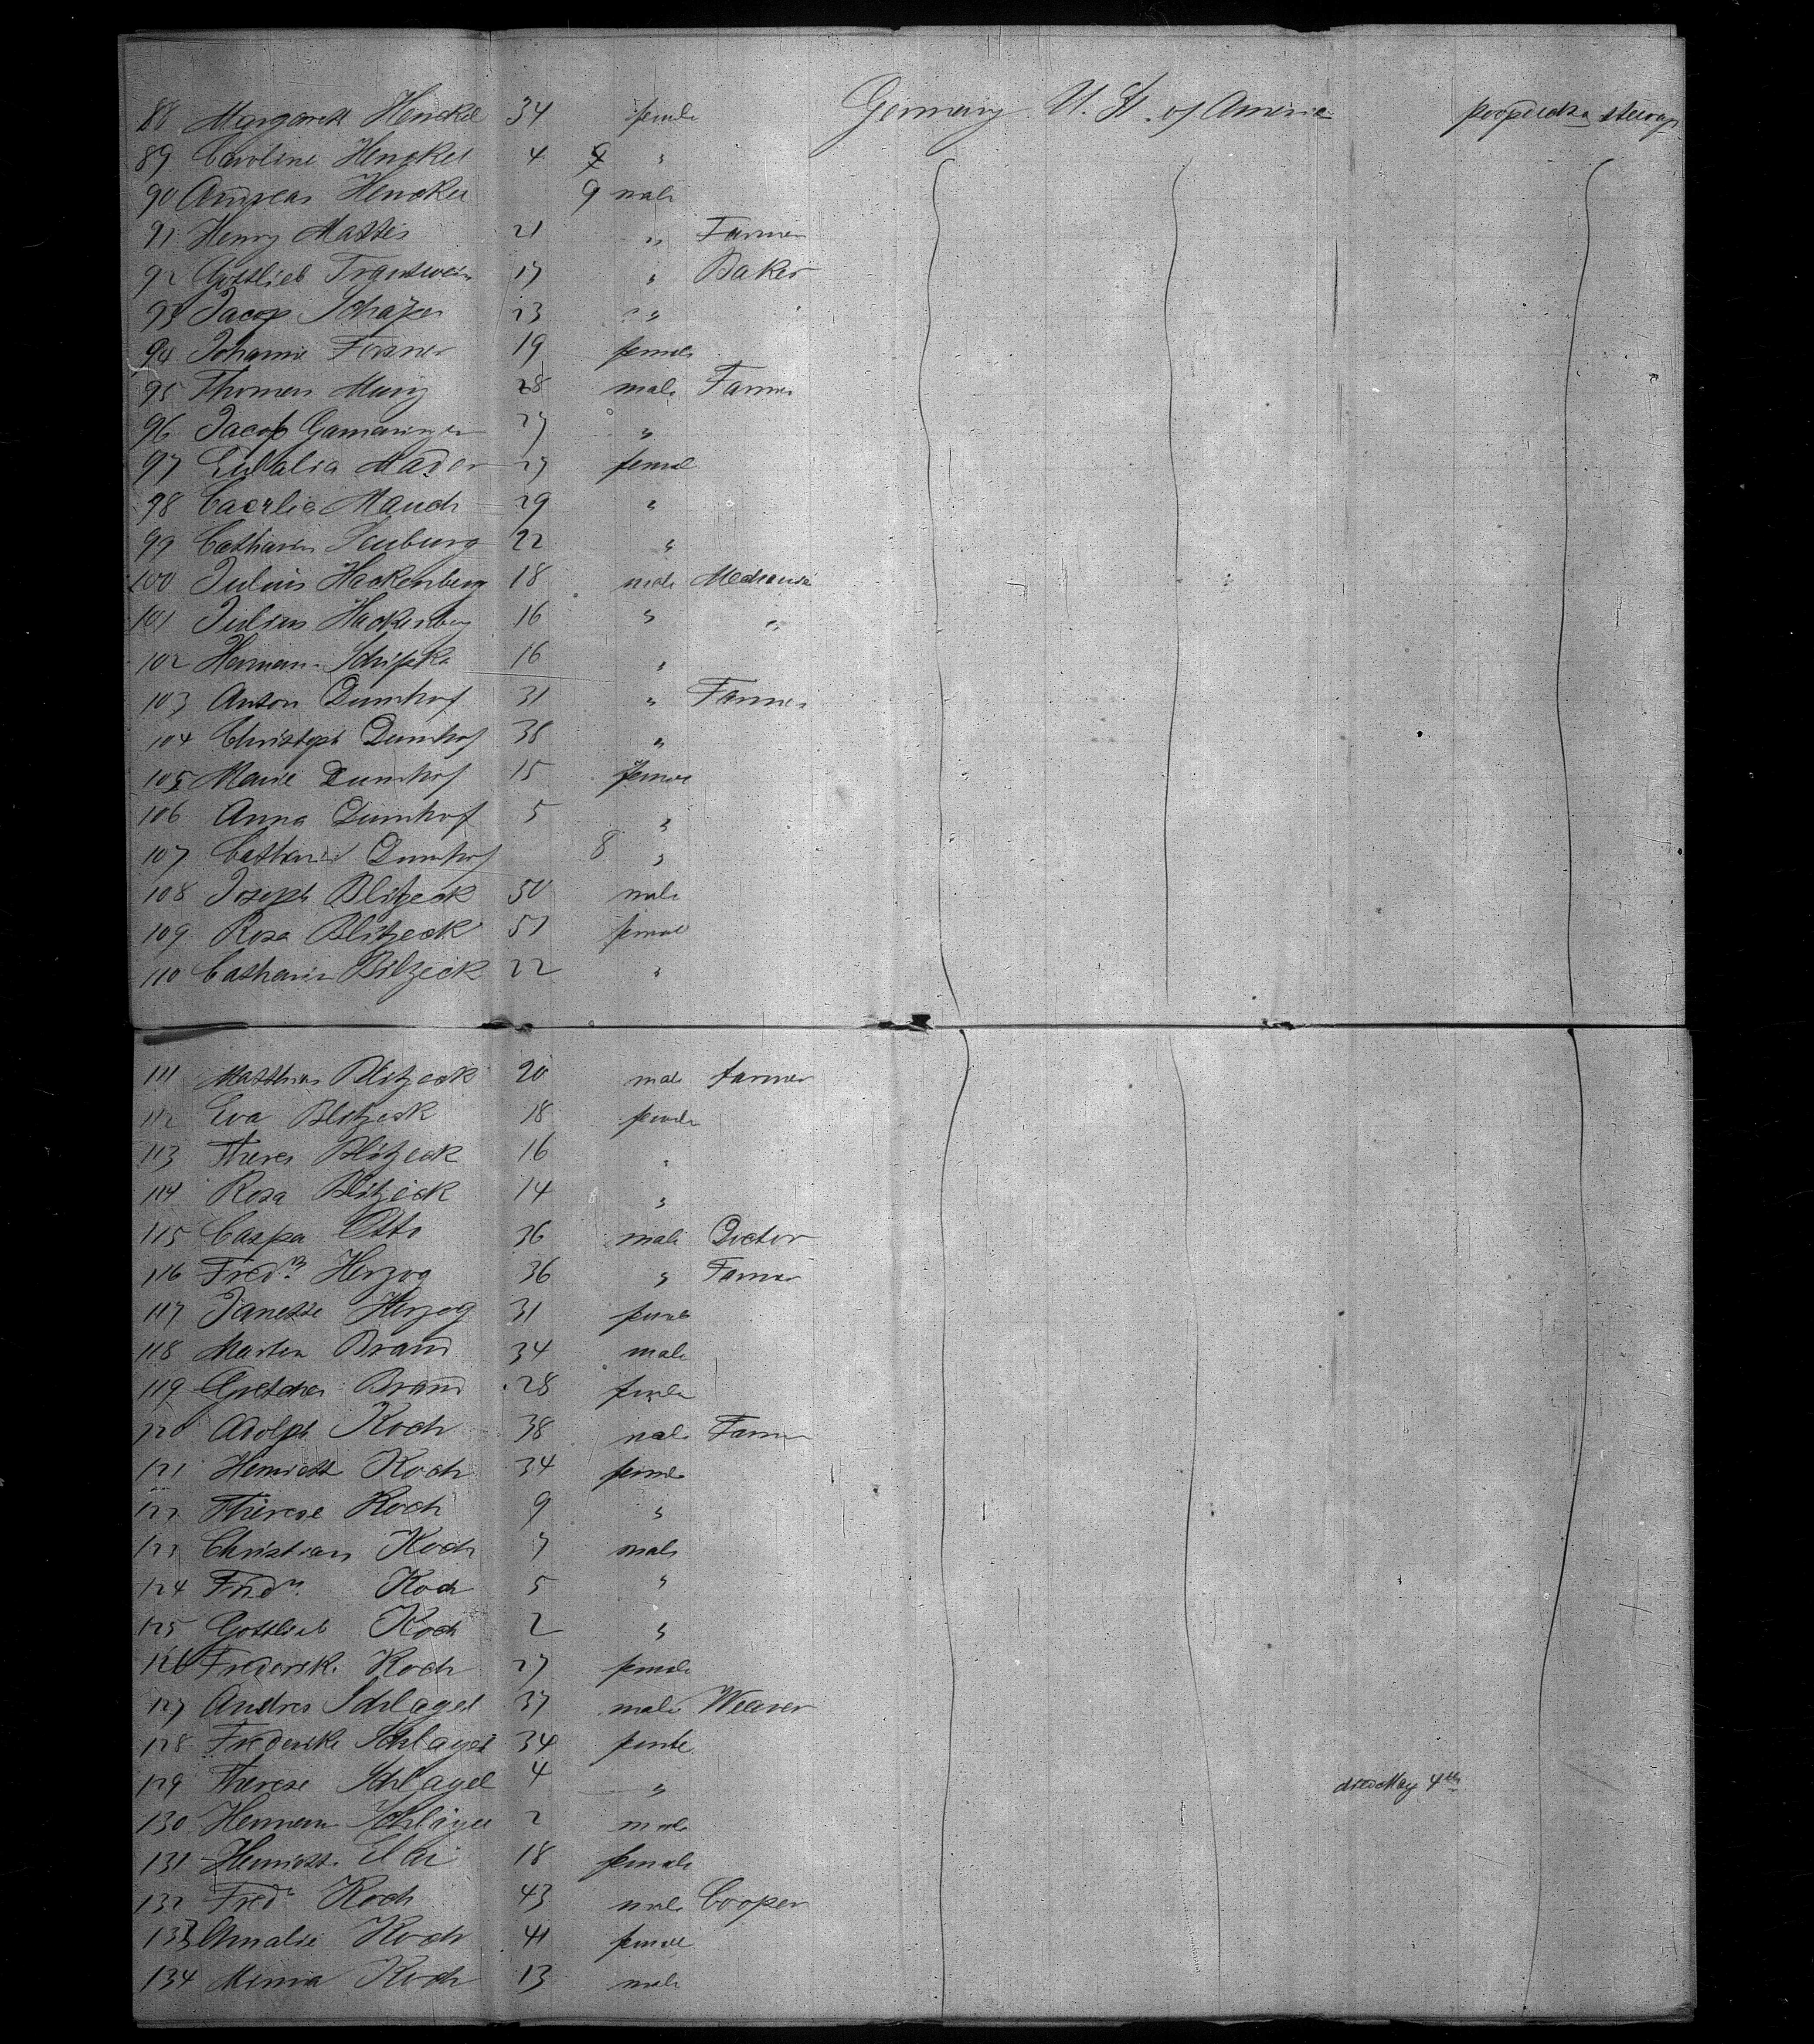 88 Margareth Henckel 34 female Germany U. St. of America steerage
89 Caroline Henckel 4 "
90 Andreas Henckel 9 male
91 Henry Mattes 21 " Farmer
92 Gottlieb Trautwein 17 " Baker
93 Jacop Schäfer 23 " "
94 Johanne Forsner 19 female
95 Thomas 28 male Farmer
96 Jacop 27 "
97 Eulalia Mader 27 female
98 Mauch 29 "
99 Catharin Seuburg 22 "
100 Julius Hackenberg 18 male Mechanic
101 Julius Hackenberg 16 " "
102 Herman 16 "
103 Anton Dumhof 31 " Farmer
104 Christoph Dumhof 38 "
105 Marie Dumhof 15 female
106 Anna Dumhof 5 "
107 Catharin Dumhof 8 "
108 Joseph Blitzeck 50 male
109 Rosa Blitzeck 51 female
110 Catharin Bilzeck 22 "
111 Matthias Blitzeck 20 male farmer
112 Eva Blitzeck 18 female
113 Theres Blitzeck 16 "
114 Rosa Blitzeck 14 "
115 Caspa Otto 36 male Doctor
116 Fred. Herzog 36 " Farmer
117 Janette Herzog 31 female
118 Marten Brand 34 male
119 Gretchen Brand 28 female
120 Adolph Koch 38 male Farmer
121 Henriette Koch 34 female
122 Therese Koch 9 "
123 Christian Koch 7 male
124 Fred. Koch 5 "
125 Gottlieb Koch 2 "
126 Frederike Koch 27 female
127 Andres Schlagel 37 male Weaver
128 Frederike Schlagel 34 female
129 Therese Schlagel 4 " died May 4th
130 Herman Schlägel 2 male
131 Henriette 18 female
132 Fred. Koch 43 male Cooper
133 Amalie Koch 41 female
134 Minna Koch 13 male